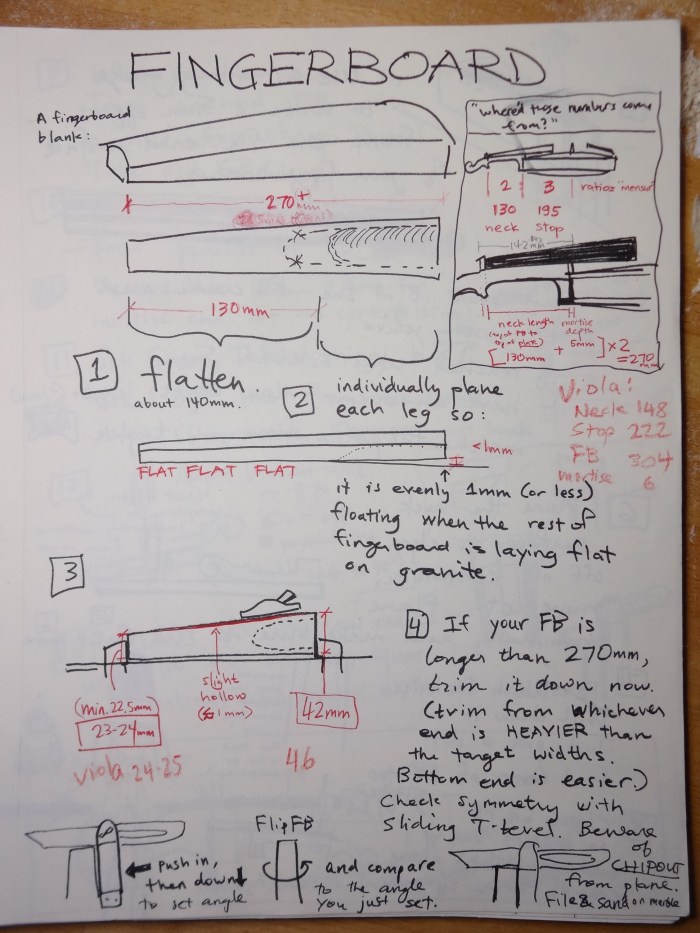 FINGERBOARD
A fingerboard
blank:
270+
mm
130mm
"where'd these numbers come
from?"
2 3 ratios "mensur"
130 195
neck stop
142mm
neck length mortise
(top of FB to depth
top of plate)
[130mm + 5mm] × 2
= 270
mm
1 flatten.
about 140mm.
2 individually plane
each leg so:
<1mm
FLAT FLAT FLAT
it is evenly 1mm (or less)
floating when the rest of
fingerboard is laying flat
on granite.
Viola:
Neck 148
Stop 222
FB 304
mortise 6
3
slight
hollow
(≤1mm)
(min. 22.5mm)
23-24mm
42mm
viola 24-25
46
4 If your FB is
longer than 270mm,
trim it down now.
(trim from whichever
end is HEAVIER than
the target widths.
Bottom end is easier.)
Check symmetry with
Sliding T-bevel. Beware
of
CHIPOUT
from plane.
File & sand on marble
push in,
then down
to set angle
Flip FB
and compare
to the angle
you just set.